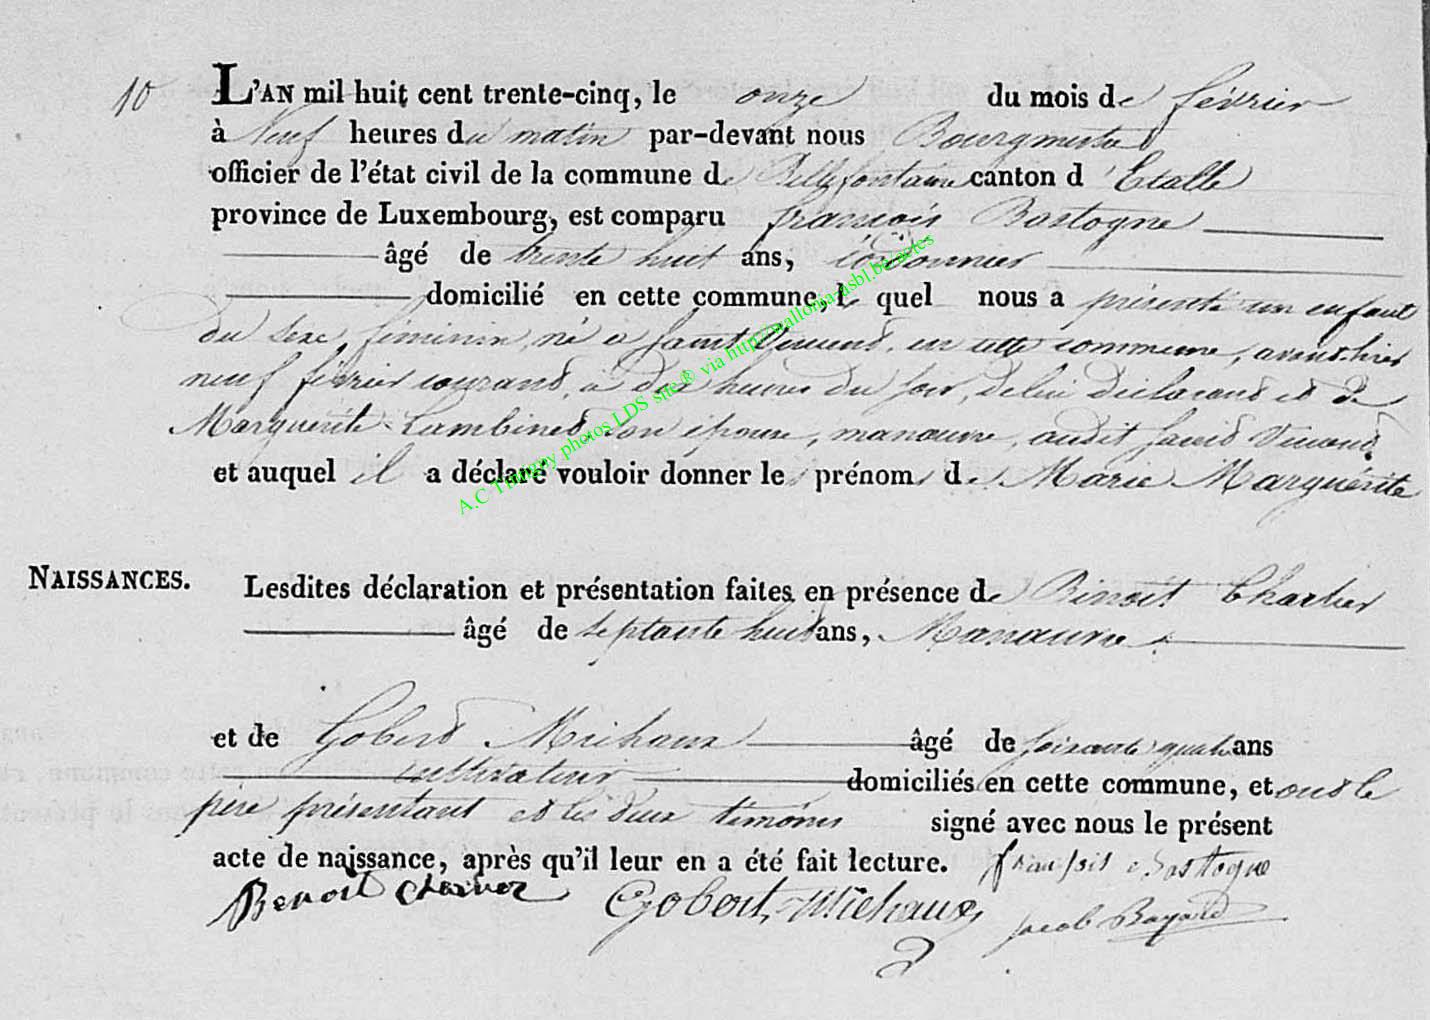 10 L'AN mil huit cent trente-cinq, le onze du mois de février
à Neuf heures du matin par-devant nous Bourgmestre
officier de l'état civil de la commune de Bellefontaine canton d'Etalle
province de Luxembourg, est comparu françois Bastogne
âgé de trente huit ans, Cordonnier
domicilié en cette commune, lequel nous a présenté un enfant
du sexe féminin, né a Saint Vincend, en cette commune, avant hier
neuf février courand, à dix heures du soir, de lui déclarand et de
Marguerite Lambined son épouse, manœuvre audit Saint Vincend.
et auquel il a déclaré vouloir donner les prénoms de Marie Marguerite
NAISSANCES.
Lesdites déclaration et présentation faites en présence de Binoit Charlier
âgé de septante huit ans, Manœuvre
et de Goberd Michaux âgé de soixante quatre ans
cultivateur domiciliés en cette commune, et ond le
père présentant et les deux témoins signé avec nous le présent
acte de naissance, après qu'il leur en a été fait lecture. franssis Bastogne
Benoit Gobert Michaux Jacob Bayard
A.C Tintigny photos LDS site® via http://wallonia-asbl.be/actes